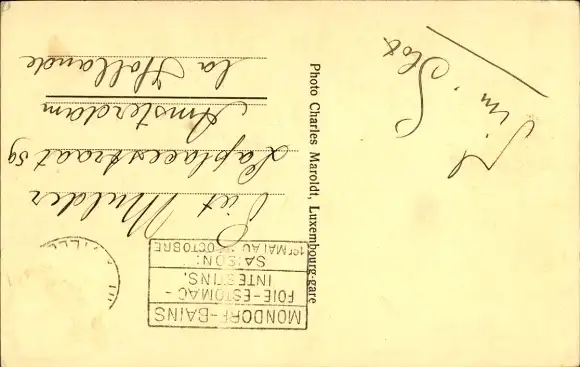 MONDORF-BAINS
FOIE-ESTOMAC-
INTESTINS.
SAISON:
1er MAI AU OCTOBRE
Piet Mulder
Laplacestraat 59
Amsterdam
la Hollande
Photo Charles Maroldt, Luxembourg-gare